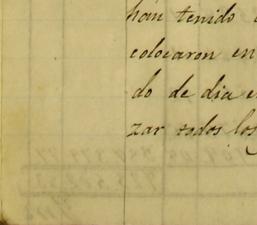 han tenido
colocaron en
do de dia e
zar todos los